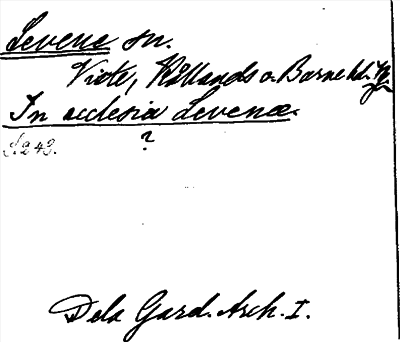 Levene sn.
Viste, Kållands o. Barne hd.
In ecclesia Levenæ.
S. 243. ?
Dela Gard. Arch. I.